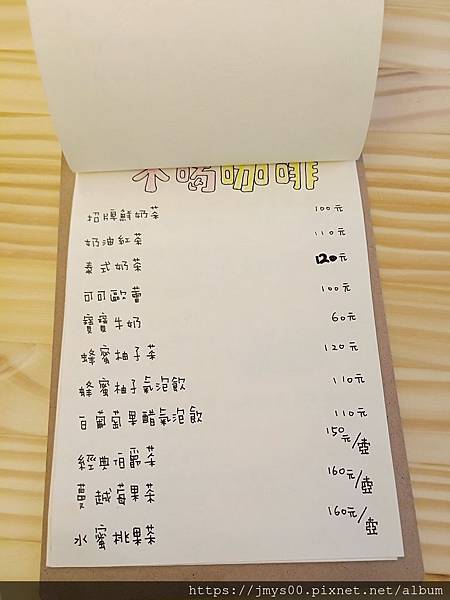 不喝咖啡
招牌鮮奶茶 100元
奶油紅茶 110元
泰式奶茶 120元
可可歐蕾 100元
寶寶牛奶 60元
蜂蜜柚子茶 120元
蜂蜜柚子氣泡飲 110元
白葡萄果醋氣泡飲 110元
經典伯爵茶 150元/壺
蔓越莓果茶 160元/壺
水蜜桃果茶 160元/壺
https://jmys00.pixnet.net/album